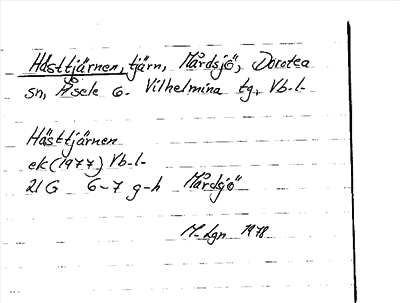 Hästtjärnen, tjärn, Mårdsjö, Dorotea
sn, Åsele o. Vilhelmina tg, Vb.l.
Hästtjärnen
ek (1977) Vb.l.
21G 6-7 g-h Mårdsjö
M-Lgn 1978